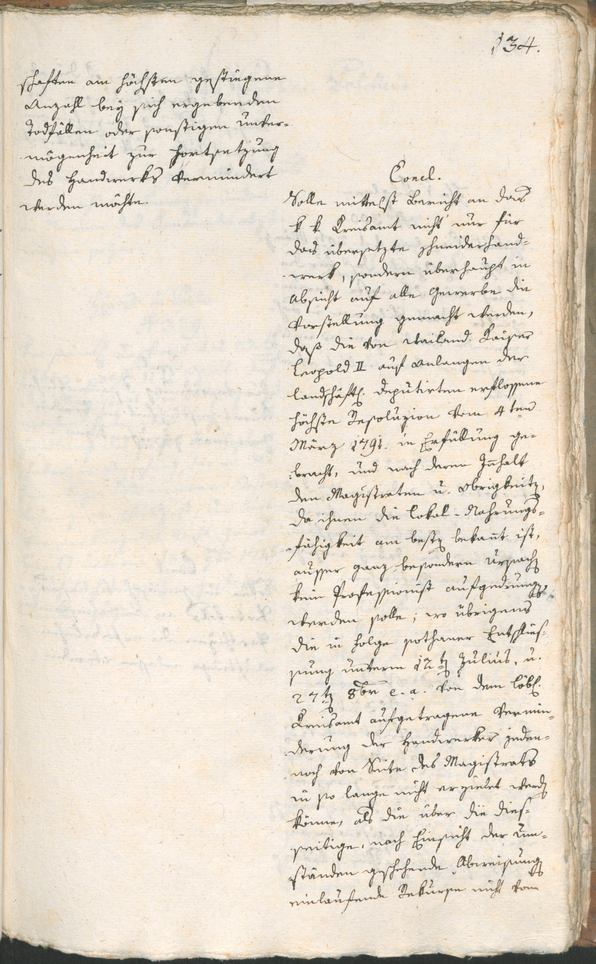 134.
schaften am höchsten gestiegene
Anzahl bey sich ergebenden
Todfällen oder sonstigen Unver-
mögenheit zur Fortsetzung
des Handwerks vermindert
werden möchte.
Concl.
Solle mittelst Bericht an das
k k Kreisamt nicht nur für
das übersetzte Schneiderhand-
werk, sondern überhaupt in
Absicht auf alle Gewerbe die
Vorstellung gemacht werden,
daß die von weiland Kaiser
Leopold II auf Anlangen der
landschäftl. deputirten erflossene
höchste Resoluzion vom 4ten
März 1791. in Erfüllung ge-
bracht, und nach deren Inhalt
den Magistraten u. Obrigkeiten,
da ihnen die Lokal-Nahrungs-
fähigkeit am besten bekannt ist,
ausser ganz besondern Ursachen
kein Professionist aufgedrungen
werden solle; wo übrigens
die in Folge sothaner Entschlies-
sung unterm 12ten Julius, u.
27ten 8ber e. a. von dem löbl.
Kreisamt aufgetragene Vermin-
derung der Handwerker jeden-
noch von Seite des Magistrats
in so lange nicht erzielet werden
könne, als die über die dies-
seitige, nach Einsicht der Um-
ständen geschehende Abweisungen
einlaufende Rekurse nicht vom